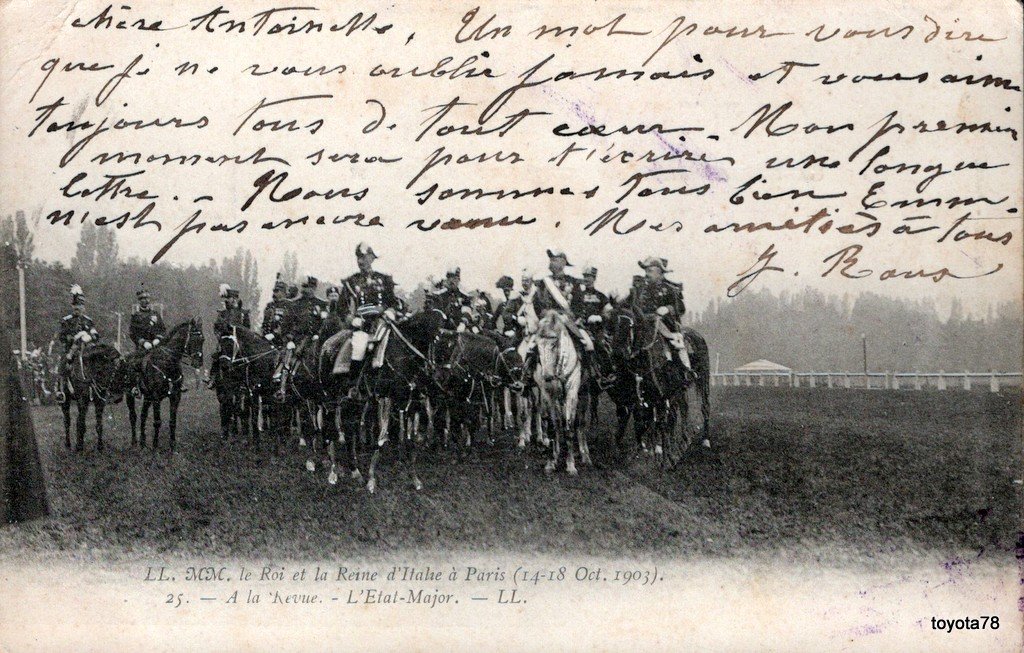 chère Antoinette, Un mot pour vous dire
que je ne vous oublie jamais et vous aime
toujours tous de tout cœur. Mon premier
moment sera pour t'écrire une longue
lettre. - Nous sommes tous bien Emm.
n'est pas encore venu. Mes amitiés à tous
J.
LL. MM. le Roi et la Reine d'Italie à Paris (14-18 Oct. 1903).
25. - A la Revue. - L'Etat-Major. - LL.
toyota78